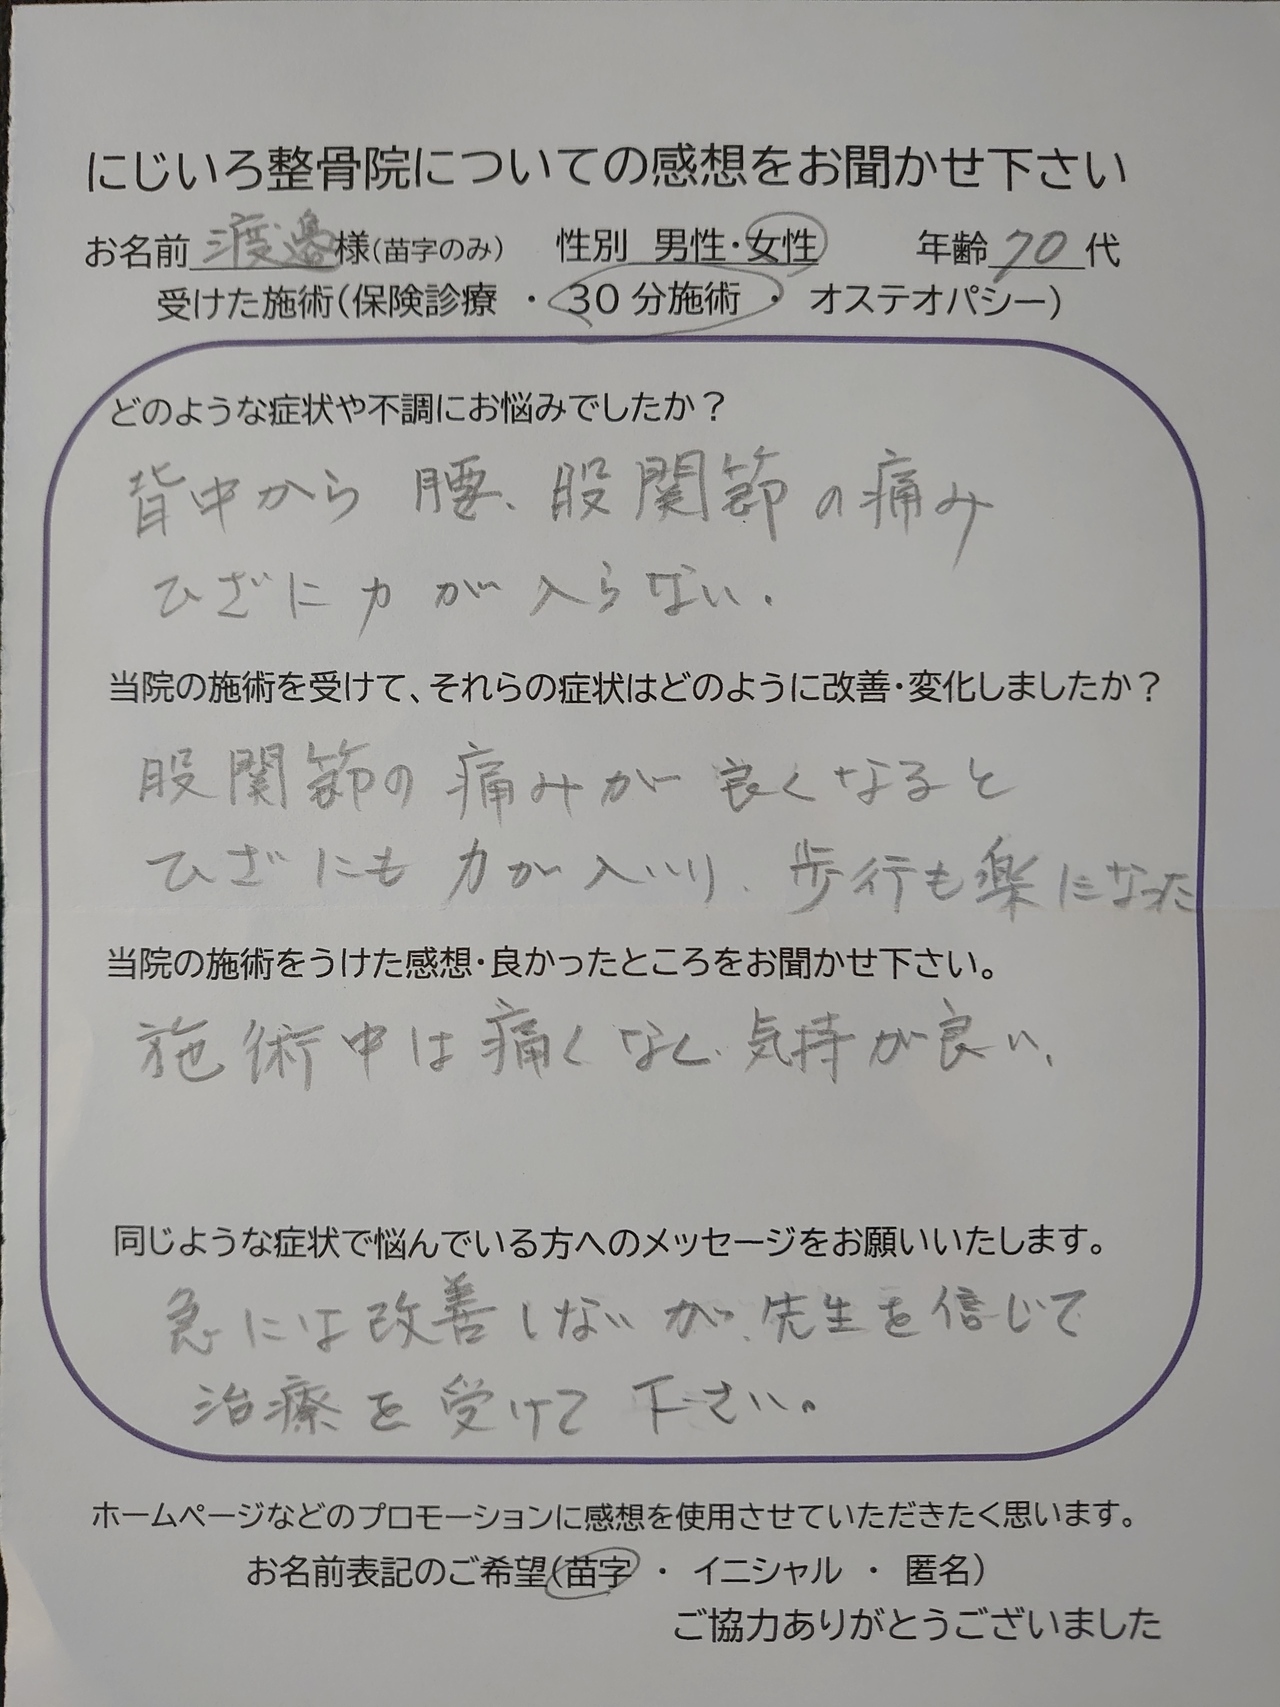 にじいろ整骨院についての感想をお聞かせ下さい
お名前 渡邉 様(苗字のみ) 性別 男性・女性 年齢 70 代
受けた施術(保険診療 ・ 30分施術 ・ オステオパシー)
どのような症状や不調にお悩みでしたか？
背中から 腰、股関節の痛み
ひざに力が入らない。
当院の施術を受けて、それらの症状はどのように改善・変化しましたか？
股関節の痛みが良くなると
ひざにも力が入いり、歩行も楽になった
当院の施術をうけた感想・良かったところをお聞かせ下さい。
施術中は痛くなく、気持が良い、
同じような症状で悩んでいる方へのメッセージをお願いいたします。
急には改善しないが、先生を信じて
治療を受けて下さい。
ホームページなどのプロモーションに感想を使用させていただきたく思います。
お名前表記のご希望(苗字 ・ イニシャル ・ 匿名)
ご協力ありがとうございました